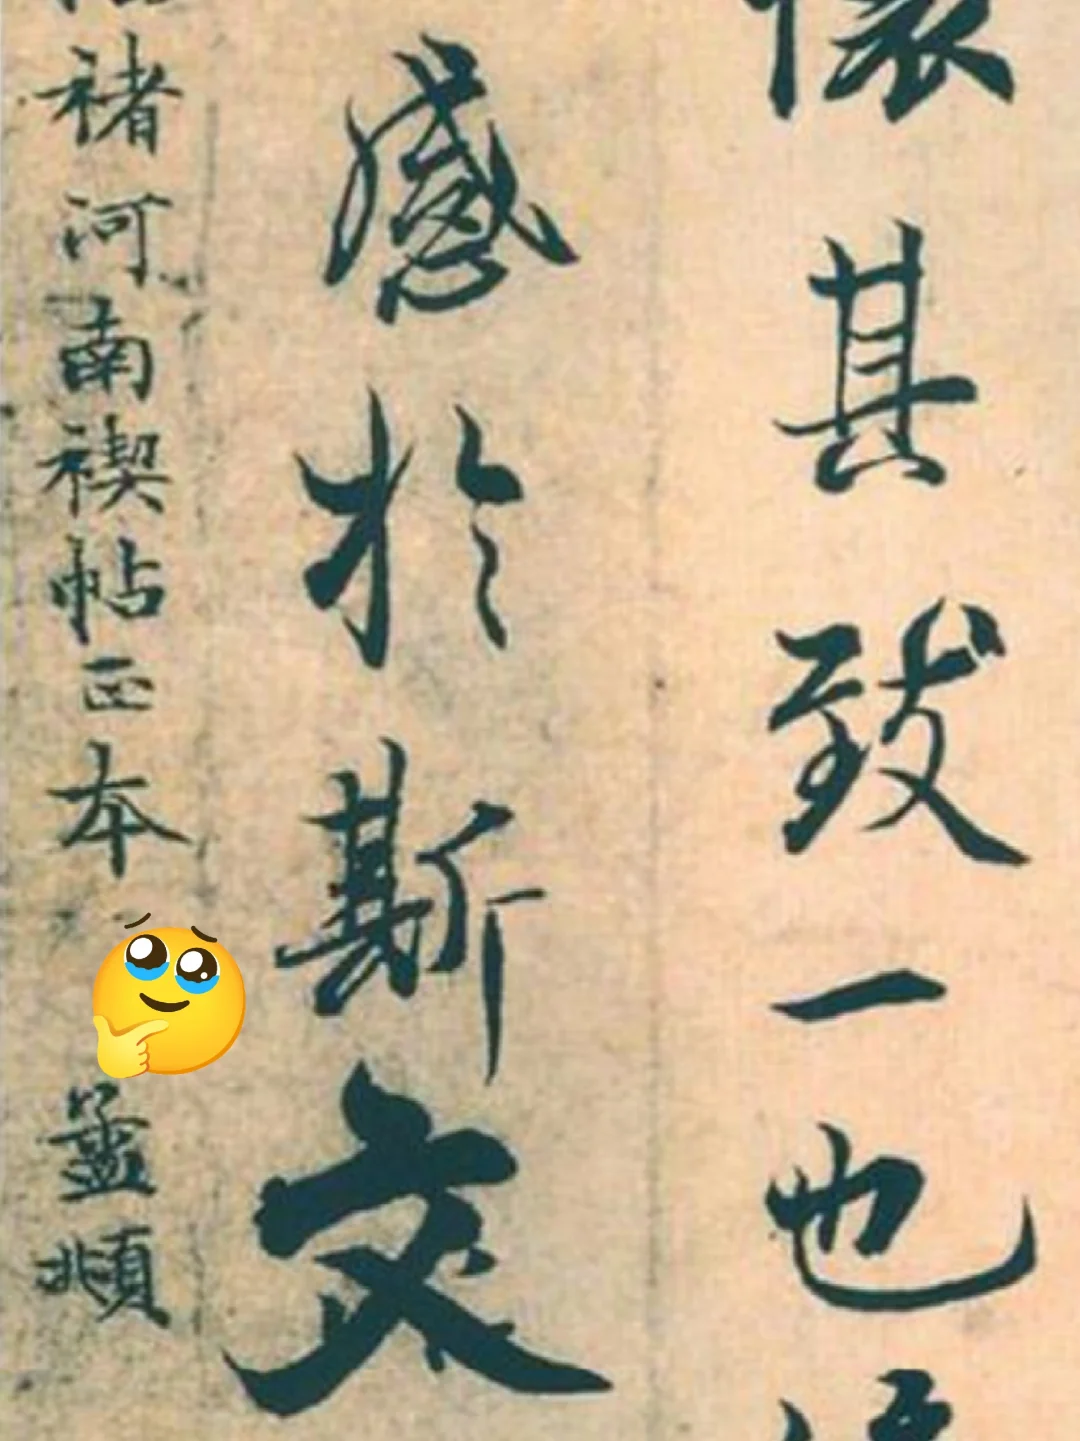 懷其致一也
感於斯文
褚河南禊帖正本 孟頫